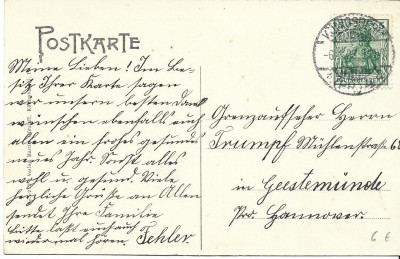 POSTKARTE
Meine Lieben! Im Be-
sitz Ihrer Karte sagen
wir unsern besten Dank
wünschen ebenfalls auch
allen ein frohes gesundes
neues Jahr. Sonst alles
wohl u. gesund. Viele
herzliche Grüße an Allen
sendet Ihre Familie
Bitte laßt euch auch
wiedermal hören. Fehler.
Grenzaufseher Herrn
Trumpf Mühlenstraße 6
in Geestemünde
Prv. Hannover.
6 E